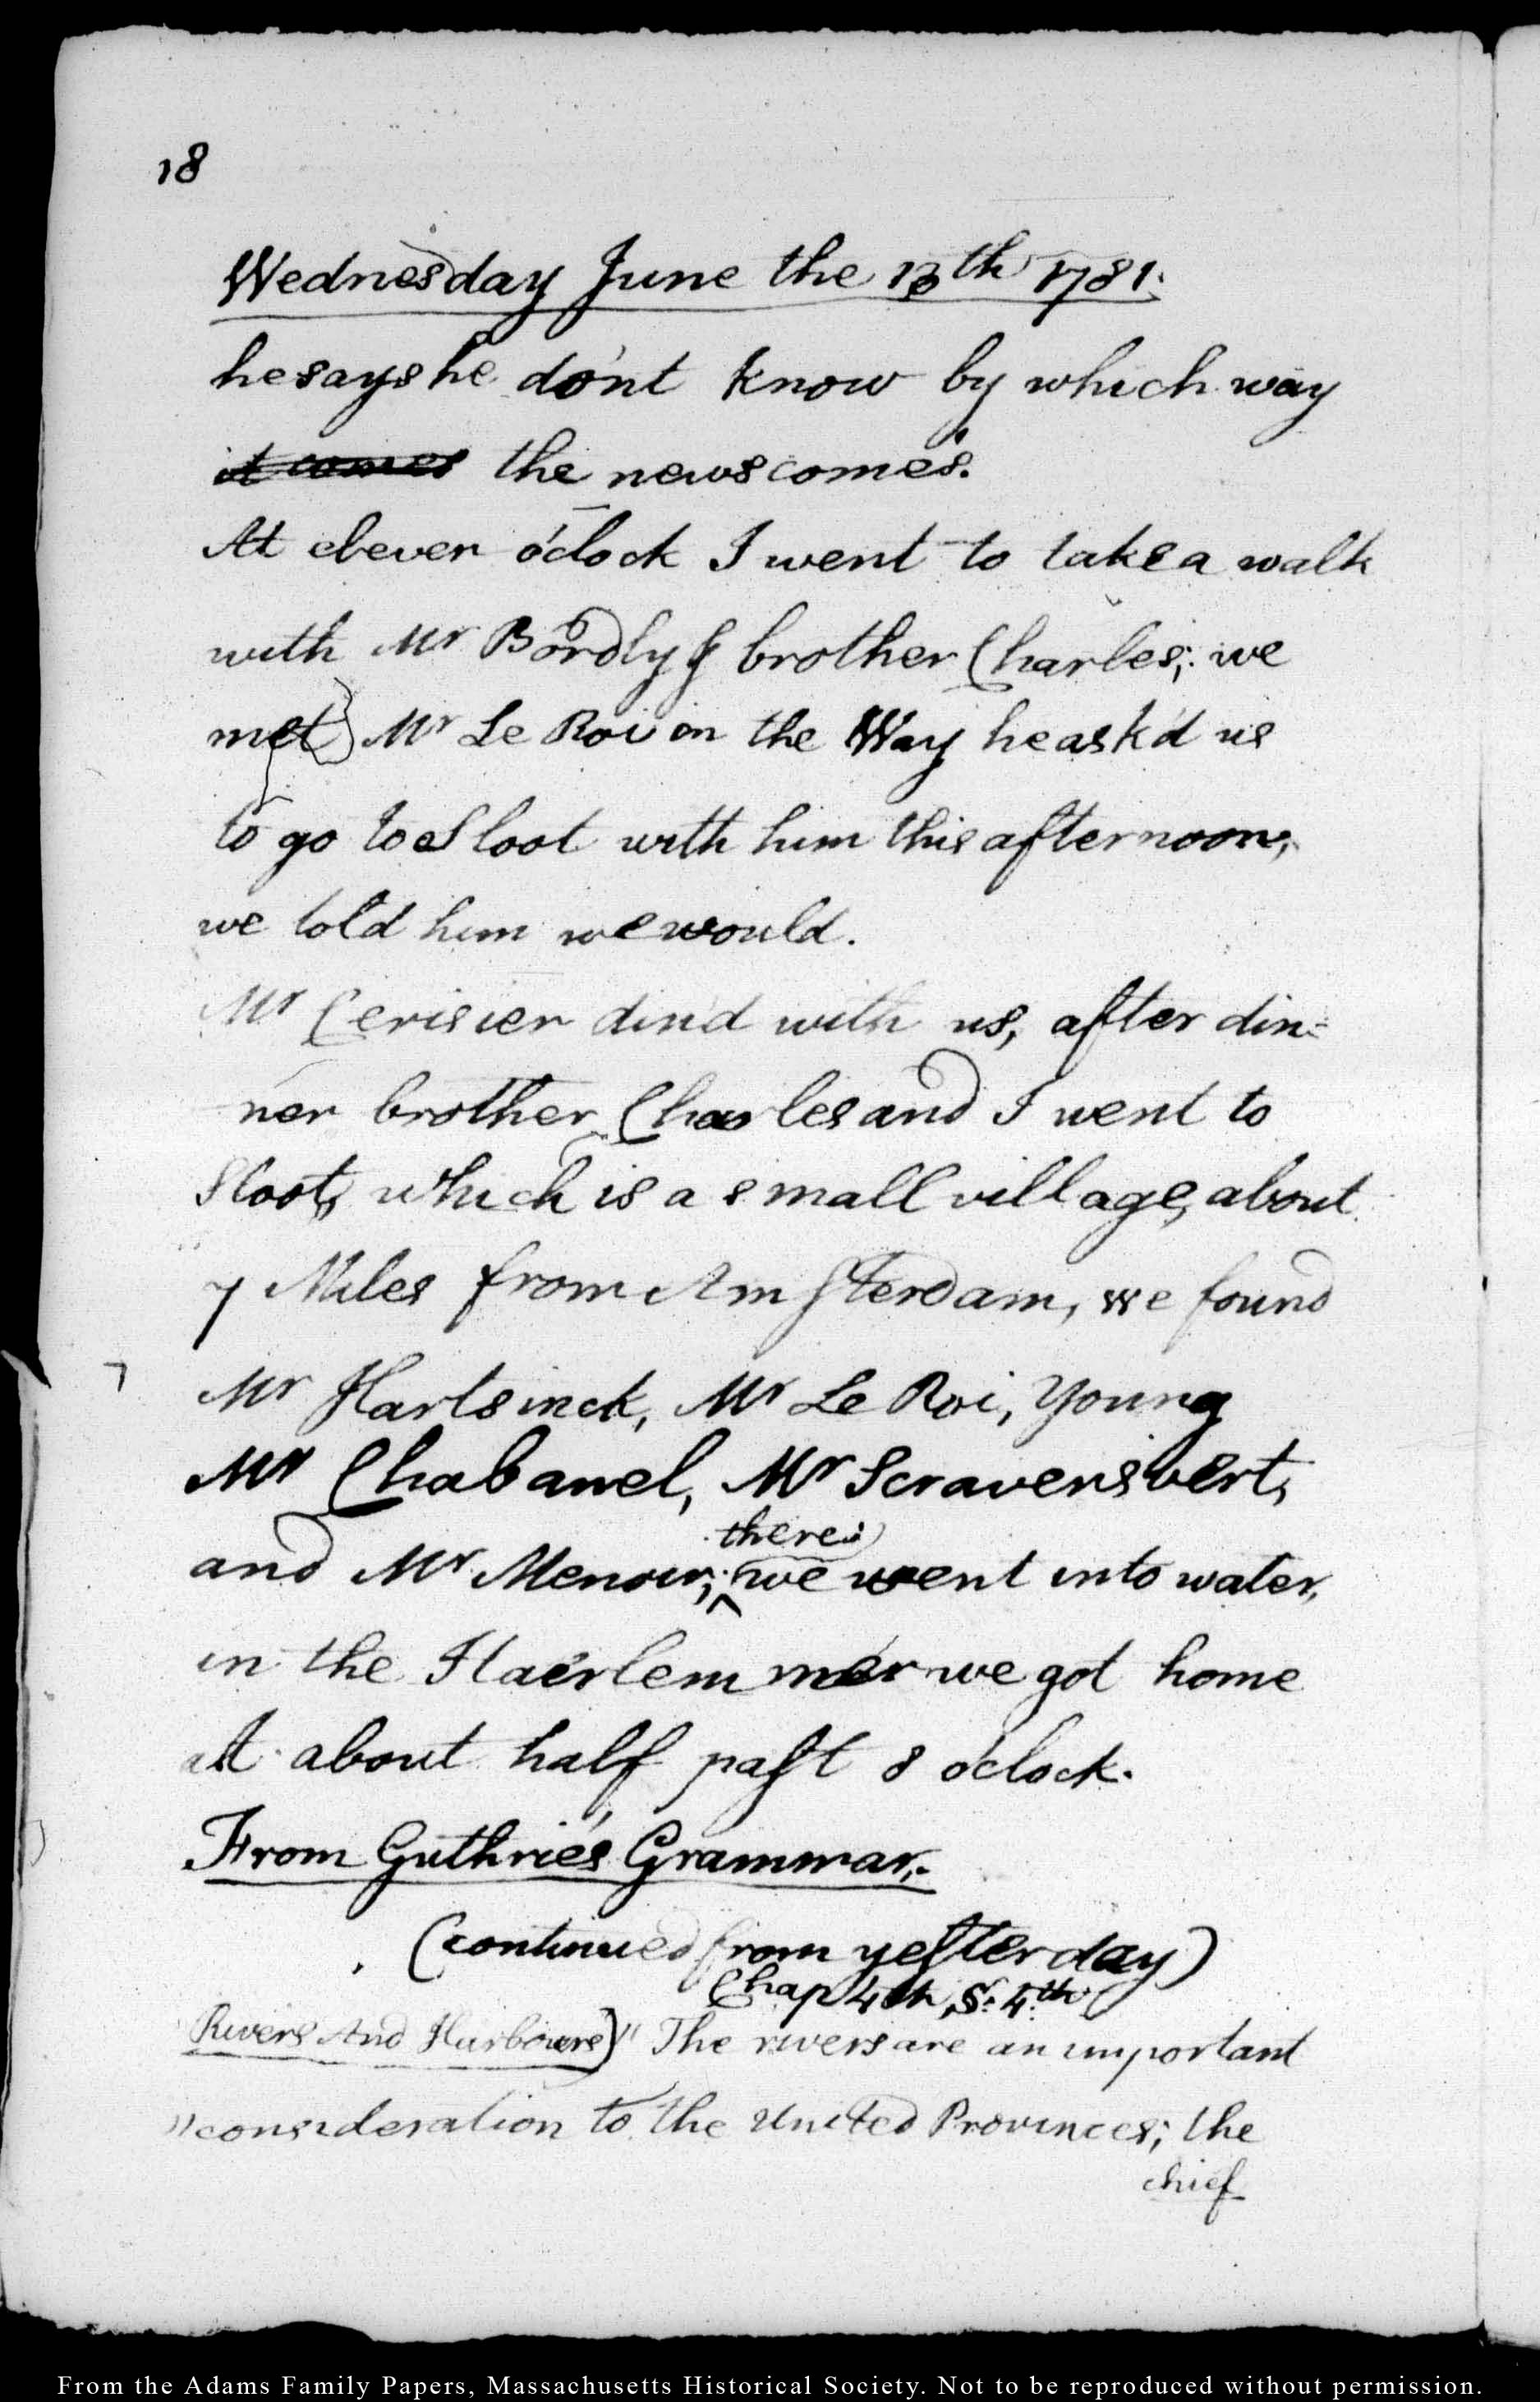 18
Wednesday June the 13th 1781.
he says he dont know by which way
it comes the news comes.
At eleven o'clock I went to take a walk
with Mr Bordly & brother Charles; we
met Mr Le Roi on the Way he ask'd us
to go to Sloot with him this afternoon,
we told him we would.
Mr Cerisier din'd with us, after din=
ner brother Charles and I went to
Sloot, which is a small village, about
7 Miles from Amsterdam, we found
Mr Hartsinck, Mr Le Roi, Young
Mr Chabanel, Mr Scravensvert,
there
and Mr Menoir; we went into water,
in the Haerlem mer we got home
at about half past 8 o'clock.
From Guthrie's Grammar.
(continued from yesterday)
Chap 4th, S. 4th
Rivers And Harbours) " The rivers are an important
" consideration to the United Provinces; the
chief
From the Adams Family Papers, Massachusetts Historical Society. Not to be reproduced without permission.